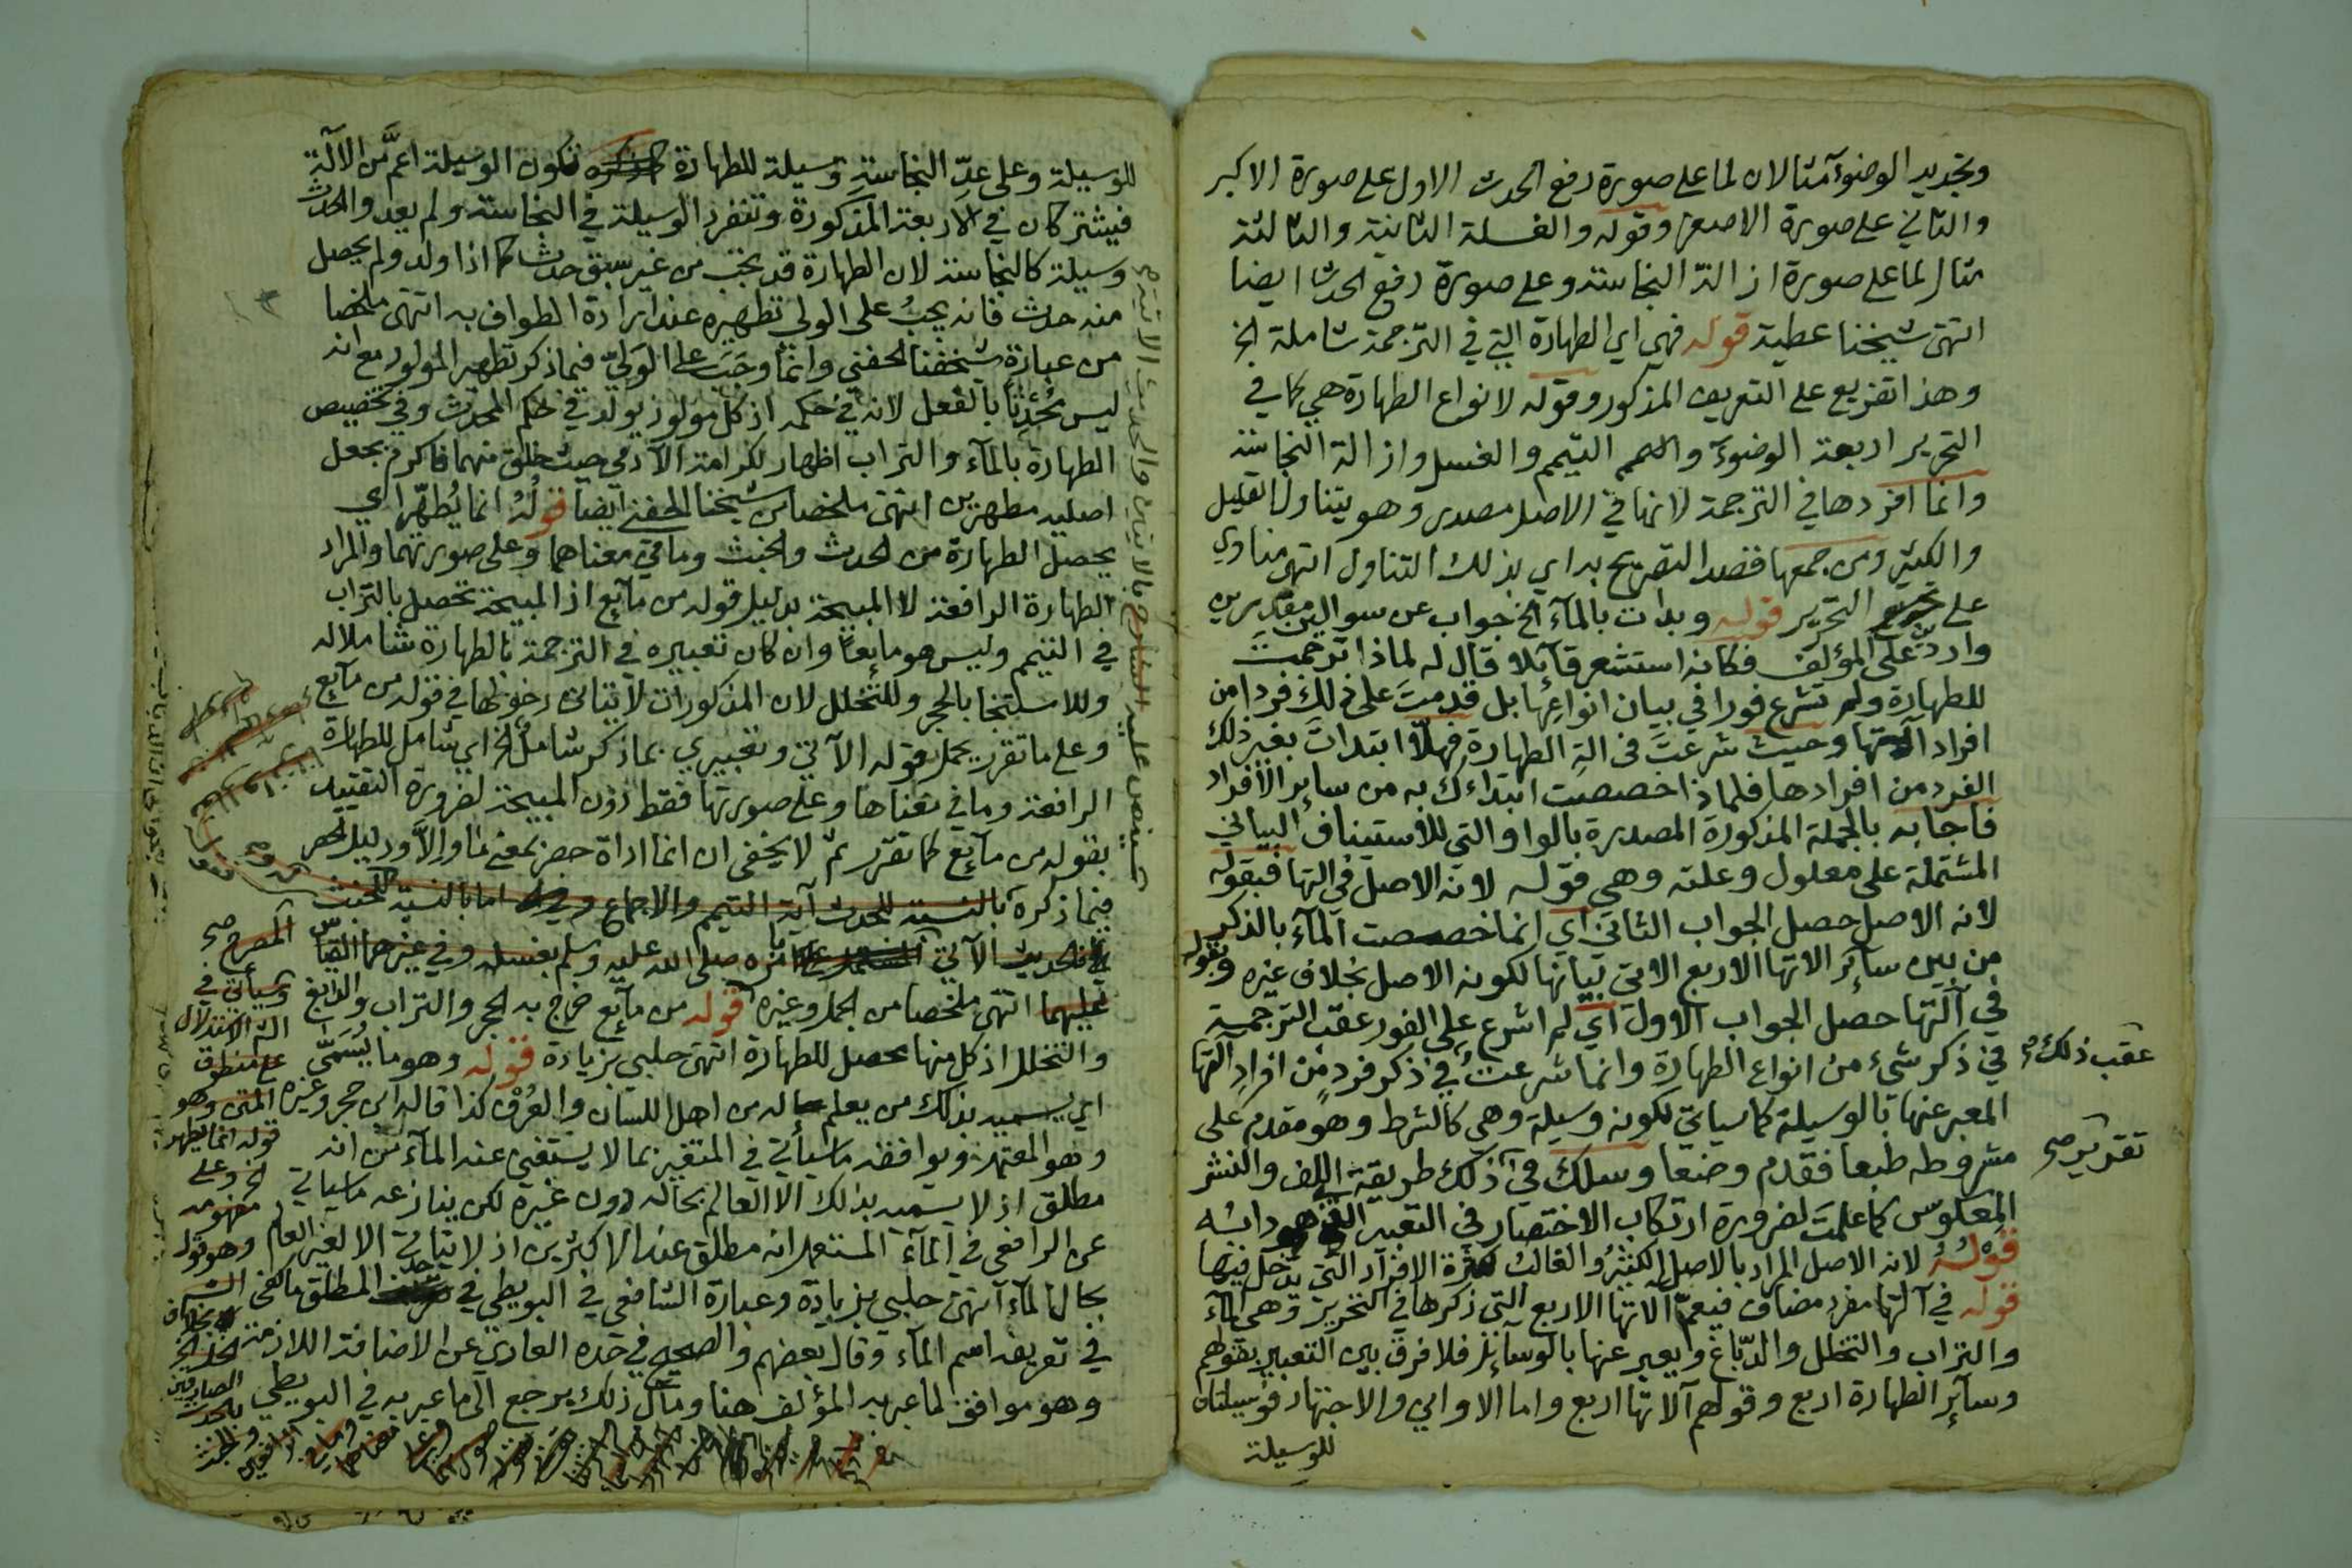 وتجديد الوضوء مثالان لما على صورة رفع الحدث الاول على صورة الاكبر
والثاني على صورة الاصغر وقوله والغسلة الثانية والثالثة
مثال لما على صورة ازالة النجاسة وعلى صورة رفع الحدث ايضا
انتهى شيخنا عطية قوله فهي اي الطهارة التي في الترجمة شاملة الخ
وهذا تفريع على التعريف المذكور وقوله لانواع الطهارة هي كما في
التحرير اربعة الوضوء والتيمم والغسل وازالة النجاسة
وانما افردها في الترجمة لانها في الاصل مصدر وهو يتناول القليل
والكثير ومن جمعها فقصد التصريح به اي بذلك التناول انتهى مناوي
على التحرير قوله وبدات بالماء الخ جواب عن سوالين مقدرين
واردين على المؤلف فكانه استشعر قائلا قال له لماذا ترجمت
للطهارة ولم تشرع فورا في بيان انواعها بل قدمت على ذلك فردا من
افراد آلتها وحيث شرعت في الة الطهارة فهلا ابتدات بغير ذلك
الفرد من افرادها فلماذا خصصت ابتداءك به من سائر الافراد
فاجابه بالجملة المذكورة المصدرة بالواو التي للاستيناف البياني
المشتملة على معلول وعلته وهي قوله لانه الاصل في التها فبقوله
لانه الاصل حصل الجواب الثاني اي انما خصصت الماء بالذكر
من بين سائر الاتها الاربع الاتي بيانها لكونه الاصل بخلاف غيره وبقوله
في آلتها حصل الجواب الاول اي لم اشرع على الفور عقب الترجمة
في ذكر شيء من انواع الطهارة وانما شرعت في ذكر فرد من افراد آلتها
عقب ذلك صح
المعبر عنها بالوسيلة كما سياتي لكونه وسيلة وهي كالشرط وهو مقدم على
مشروطه طبعا فقدم وضعا وسلك في ذلك طريقة اللف والنشر
تقدير صح
المعكوس كما علمت لضرورة ارتكاب الاختصار في التعبير الذي هو دابه
قوله لانه الاصل المراد بالاصل الكثير والغالب كثرة الافراد التي يدخل فيها
قوله في آلتها مفرد مضاف فيعم آلاتها الاربع التي ذكرها في التحرير وهي الماء
والتراب والتخلل والدباغ ويعبر عنها بالوسائل فلا فرق بين التعبير بقولهم
وسائر الطهارة اربع وقولهم آلاتها اربع واما الاواني والاجتهاد فوسيلتان
للوسيلة
للوسيلة وعلى عد النجاسة وسيلة للطهارة تكون الوسيلة اعم من الآلة
فيشتركان في الاربعة المذكورة وتنفرد الوسيلة في النجاسة ولم يعدوا الحدث
وسيلة كالنجاسة لان الطهارة قد تجب من غير سبق حدث كما اذا ولد ولم يحصل
منه حدث فانه يجب على الولي تطهيره عند ارادة الطواف به انتهى ملخصا
من عبارة شيخنا الحفني وانما وجب على الولي فيما ذكر تطهير المولود مع انه
ليس محدثا بالفعل لانه في حكمه اذ كل مولود يولد في حكم المحدث وفي تخصيص
الطهارة بالماء والتراب اظهار لكرامة الآدمي حيث خلق منهما فاكرم بجعل
اصليه مطهرين انتهى ملخصا من شيخنا الحفني ايضا قوله انما يطهر اي
يحصل الطهارة من الحدث والخبث وما في معناهما وعلى صورتهما والمراد
الطهارة الرافعة لا المبيحة بدليل قوله من مائع اذ المبيحة تحصل بالتراب
في التيمم وليس هو مائعا وان كان تعبيره في الترجمة بالطهارة شاملا له
وللاستنجا بالحجر وللتخلل لان المذكورات لا يتاتى دخولها في قوله من مائع
وعلى ما تقرر يحمل قوله الآتي وتعبيري بما ذكر شامل الخ اي شامل للطهارة
الرافعة وما في معناها وعلى صورتها فقط دون المبيحة لضرورة التقييد
بقوله من مائع كما تقرر ثم لا يخفى ان انما اداة حصر بمعنى ما والا ودليل الحصر
فيما ذكره بالنسبة للحدث آية التيمم والاجماع اما بالنسبة للخبث
الحديث الآتي امره صلى الله عليه وسلم بغسله وفي غيرهما القياس
عليهما انتهى ملخصا من الجمل وغيره قوله من مائع خرج به الحجر والتراب والدابغ
والتخلل اذ كل منها محصل للطهارة انتهى حلبي بزيادة قوله وهو ما يسمى
اي يسميه بذلك من يعلم حاله من اهل اللسان والعرف كذا قاله ابن حجر وغيره
وهو المعتمد ويوافقه ماسياتي في المتغير بما لا يستغني عنه الماء من انه
مطلق اذ لا يسميه بذلك الا العالم بحاله دون غيره لكن ينازعه ماسياتي
عن الرافعي في الماء المستعمل انه مطلق عند الاكثرين اذ لا يتاتى الا لغير العالم
بحال الماء انتهى حلبي بزيادة وعبارة الشافعي في البويطي في حد المطلق ما كفى
في تعريفه اسم الماء وقال بعضهم والصحيح في حده العاري عن الاضافة اللازمة
وهو موافق لما عبر به المؤلف هنا ومآل ذلك يرجع الى ما عبر به في البويطي
المصرح صح
وسيأتي في
الشرح الاستدلال
على منطوق
المتن وهو
قوله انما يطهر
الخ وعلى
مفهومه
وهو قوله
بخلاف